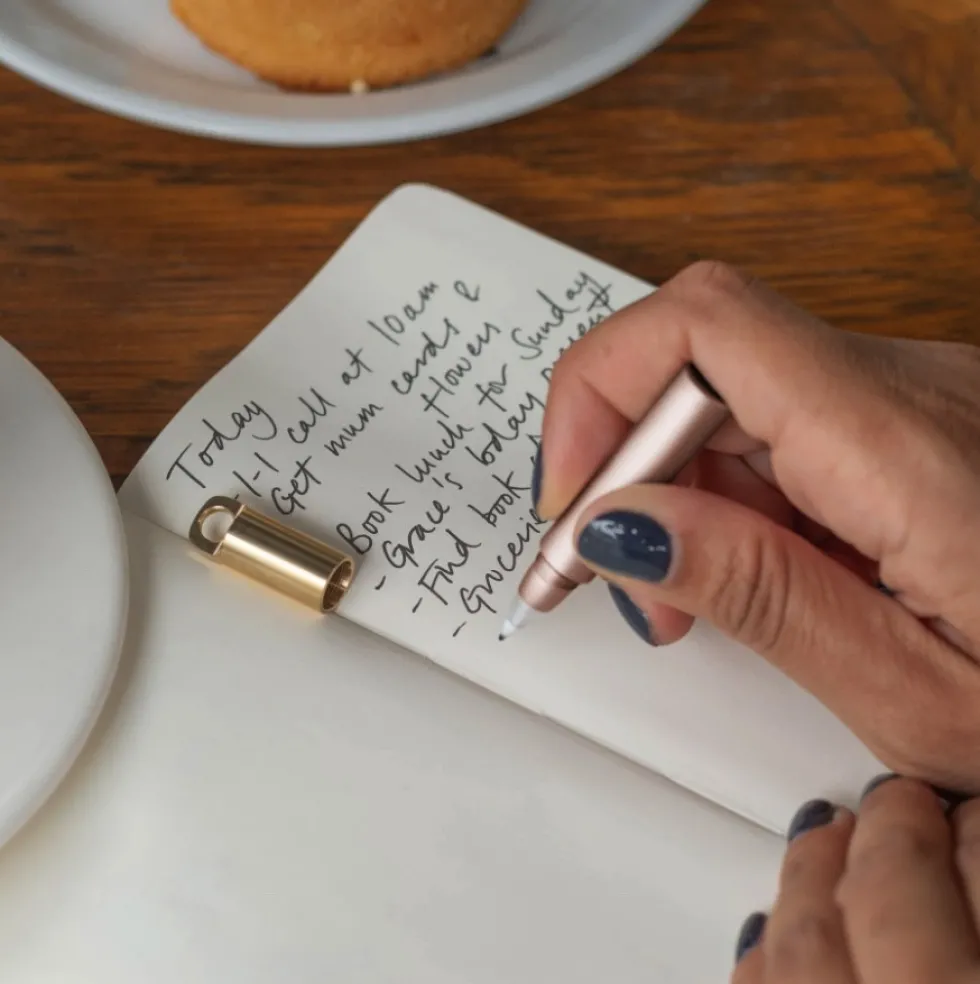 Today
-1-1 call at 10am
Get mum cards &
flowers
Book lunch for Sunday
- Grace's bday present
- Find book
- Groceries